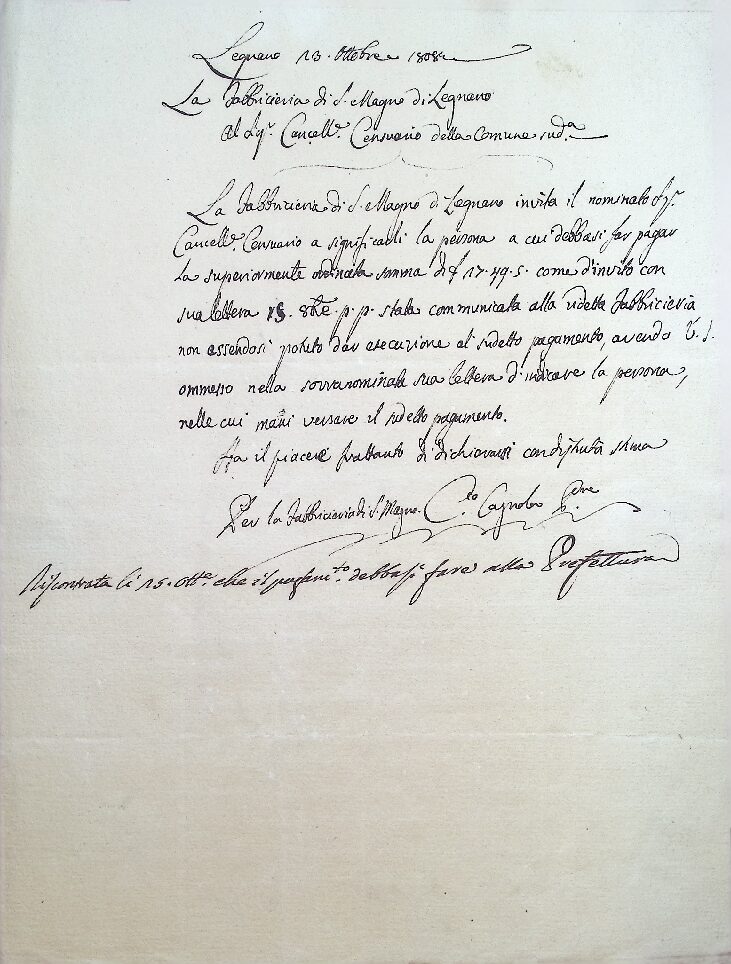 Legnano 13. Ottobre 1808
La Fabbricieria di S. Magno di Legnano
Al Sig.r Cancell.e Censuario della Comune sud.a
La Fabbricieria di S. Magno di Legnano invita il nominato Sig.r
Cancell.e Censuario a significarli la persona a cui debbasi far pagar
la superiormente ordinata somma di £ 17.49.5. come d'invito con
sua lettera 8bre p.p. stata communicata alla ridetta Fabbricieria
non essendosi potuto dar esecuzione al sudetto pagamento, avendo V.S.
ommesso nella sovranominata sua lettera d'indicare la persona,
nelle cui mani versare il sudetto pagamento.
Ha il piacere frattanto di dichiararsi con distinta stima
Per la Fabbricieria di S. Magno. Cagnola
Riscontrata li 15. Ott.e che il pagam.to debbasi fare alla Prefettura